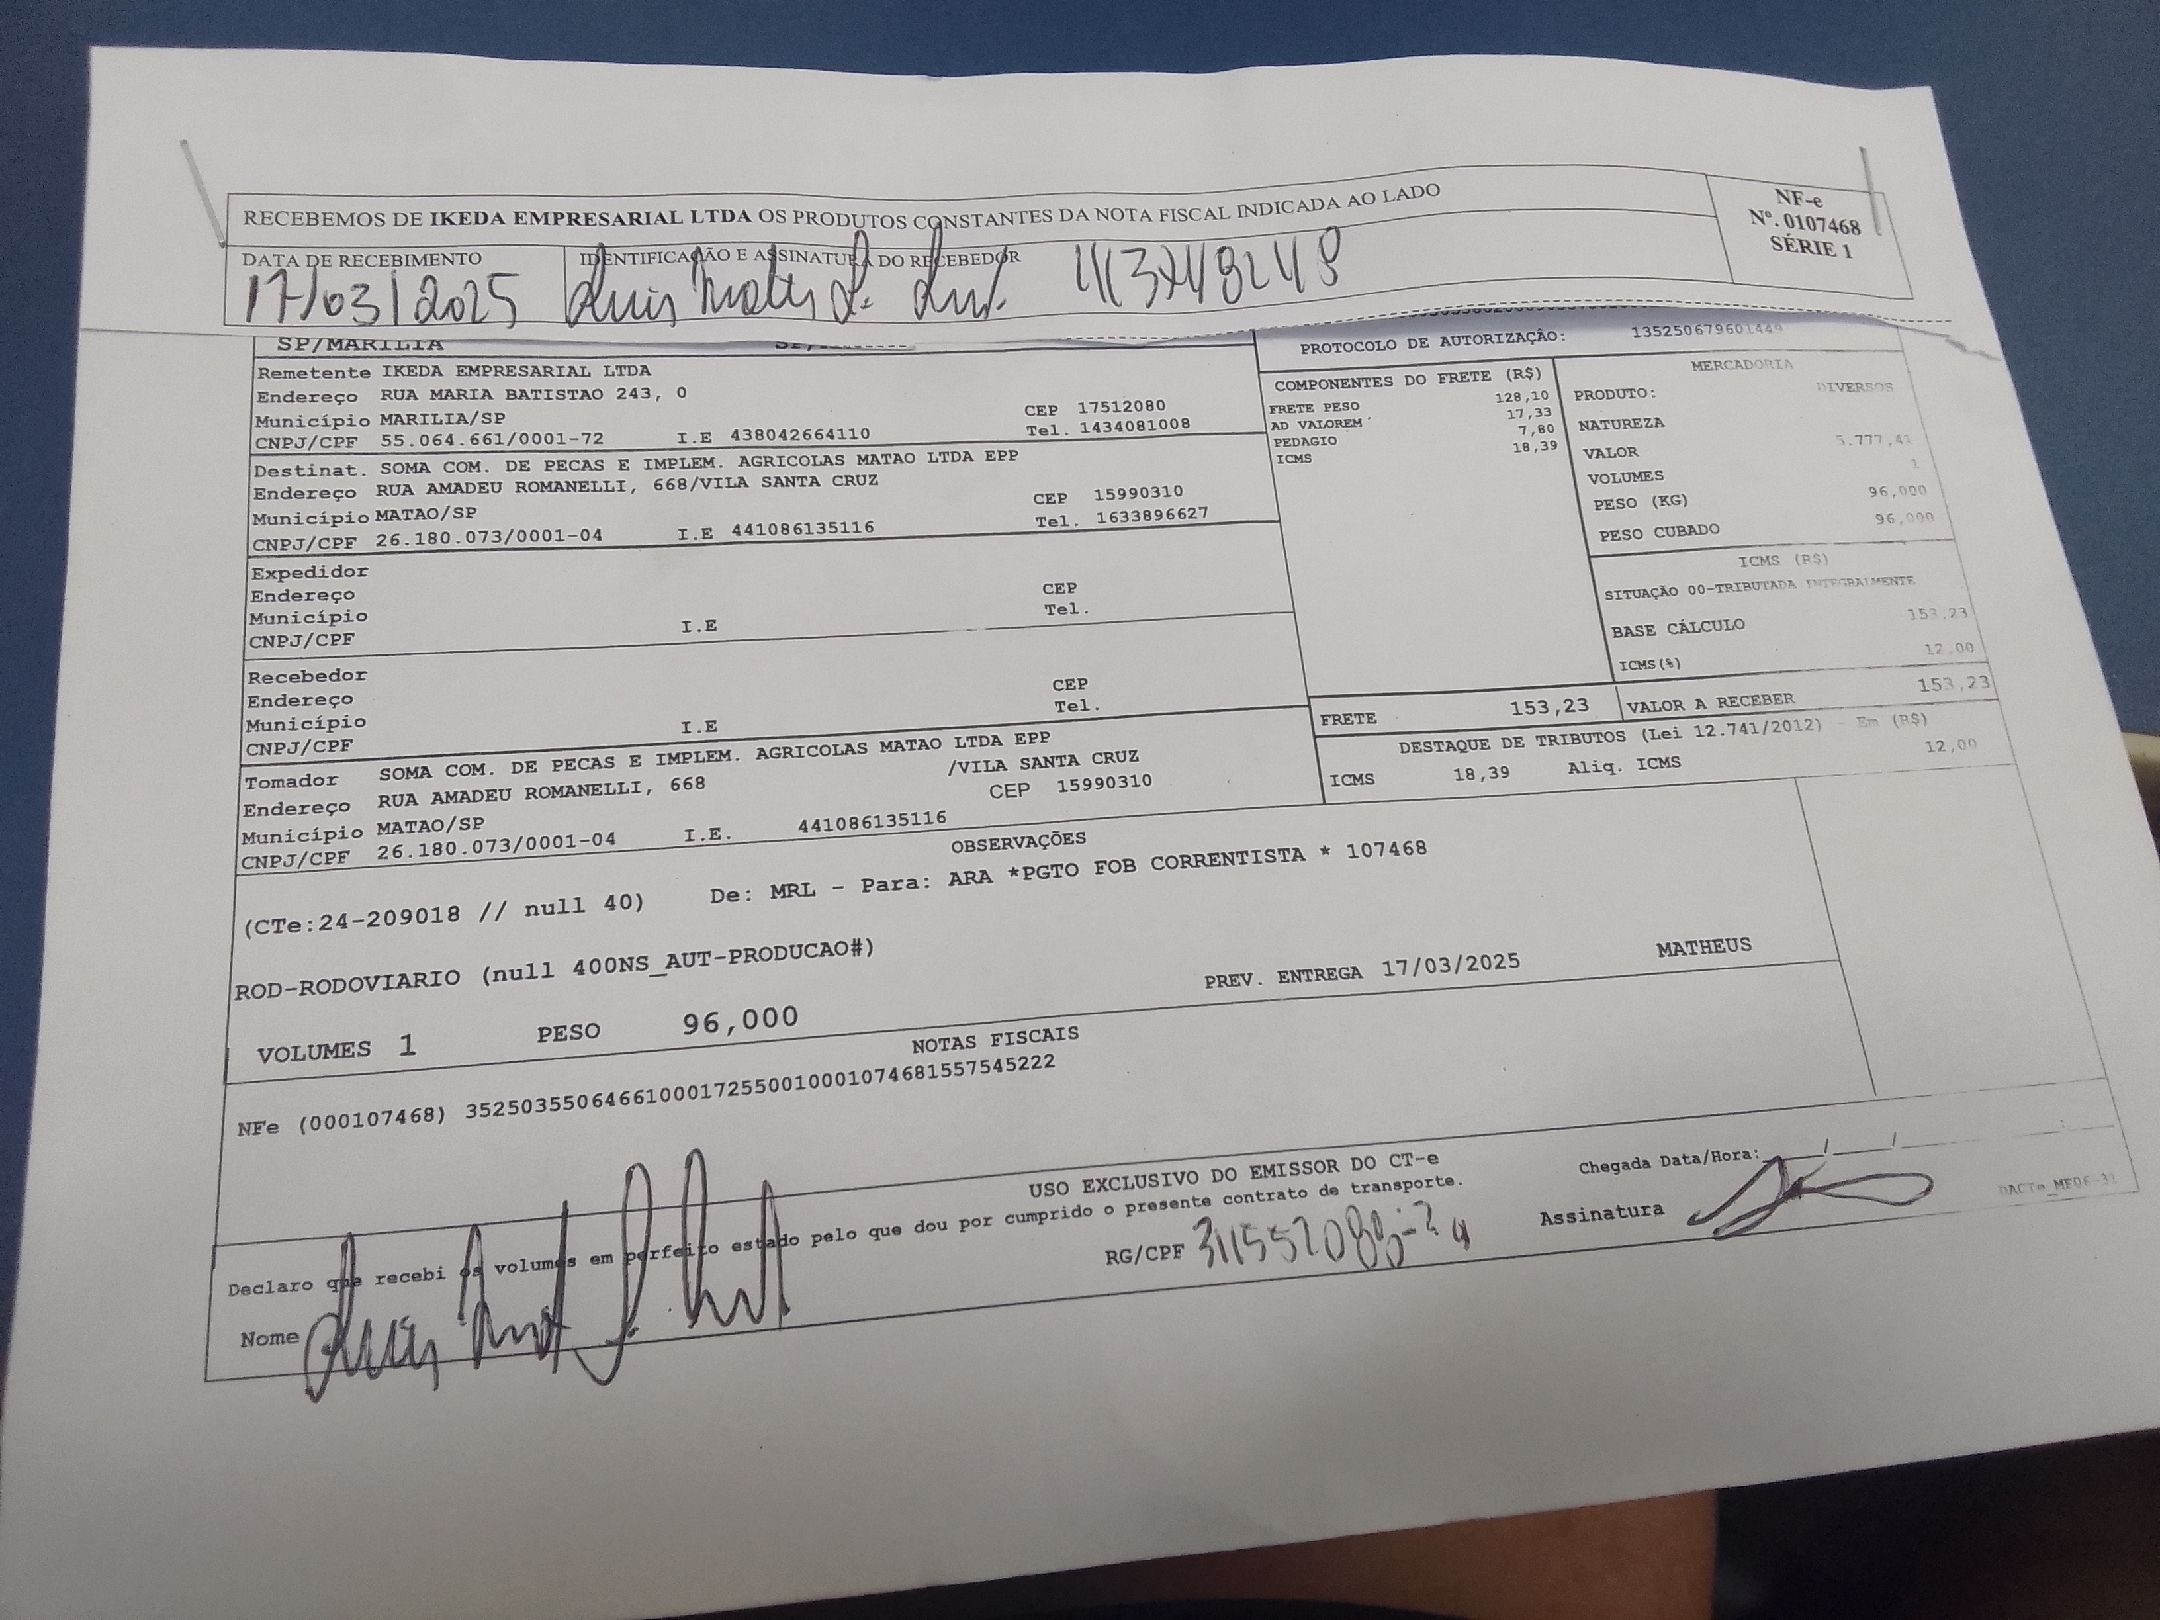 RECEBEMOS DE IKEDA EMPRESARIAL LTDA OS PRODUTOS CONSTANTES DA NOTA FISCAL INDICADA AO LADO
NF-e
Nº. 0107468
SÉRIE 1
DATA DE RECEBIMENTO
IDENTIFICAÇÃO E ASSINATURA DO RECEBEDOR
17/03/2025
SP/MARILIA
Remetente IKEDA EMPRESARIAL LTDA
Endereço RUA MARIA BATISTAO 243, 0
Município MARILIA/SP CEP 17512080
CNPJ/CPF 55.064.661/0001-72 I.E 438042664110 Tel. 1434081008
Destinat. SOMA COM. DE PECAS E IMPLEM. AGRICOLAS MATAO LTDA EPP
Endereço RUA AMADEU ROMANELLI, 668/VILA SANTA CRUZ
Município MATAO/SP CEP 15990310
CNPJ/CPF 26.180.073/0001-04 I.E 441086135116 Tel. 1633896627
Expedidor
Endereço CEP
Município Tel.
CNPJ/CPF I.E
Recebedor
Endereço CEP
Município Tel.
CNPJ/CPF I.E
Tomador SOMA COM. DE PECAS E IMPLEM. AGRICOLAS MATAO LTDA EPP
Endereço RUA AMADEU ROMANELLI, 668 /VILA SANTA CRUZ
Município MATAO/SP CEP 15990310
CNPJ/CPF 26.180.073/0001-04 I.E. 441086135116
PROTOCOLO DE AUTORIZAÇÃO: 135250679601449
COMPONENTES DO FRETE (R$)
FRETE PESO 128,10
AD VALOREM 17,33
PEDAGIO 7,80
ICMS 18,39
MERCADORIA
PRODUTO: DIVERSOS
NATUREZA
VALOR 5.777,41
VOLUMES 1
PESO (KG) 96,000
PESO CUBADO 96,000
ICMS (R$)
SITUAÇÃO 00-TRIBUTADA INTEGRALMENTE
BASE CÁLCULO 153,23
ICMS(%) 12,00
FRETE 153,23 VALOR A RECEBER 153,23
DESTAQUE DE TRIBUTOS (Lei 12.741/2012) - Em (R$)
ICMS 18,39 Aliq. ICMS 12,00
OBSERVAÇÕES
(CTe:24-209018 // null 40) De: MRL - Para: ARA *PGTO FOB CORRENTISTA * 107468
ROD-RODOVIARIO (null 400NS_AUT-PRODUCAO#)
VOLUMES 1 PESO 96,000 PREV. ENTREGA 17/03/2025 MATHEUS
NOTAS FISCAIS
NFe (000107468) 35250355064661000172550010001074681557545222
USO EXCLUSIVO DO EMISSOR DO CT-e
Declaro que recebi os volumes em perfeito estado pelo que dou por cumprido o presente contrato de transporte.
Chegada Data/Hora: / / :
Nome
RG/CPF
Assinatura